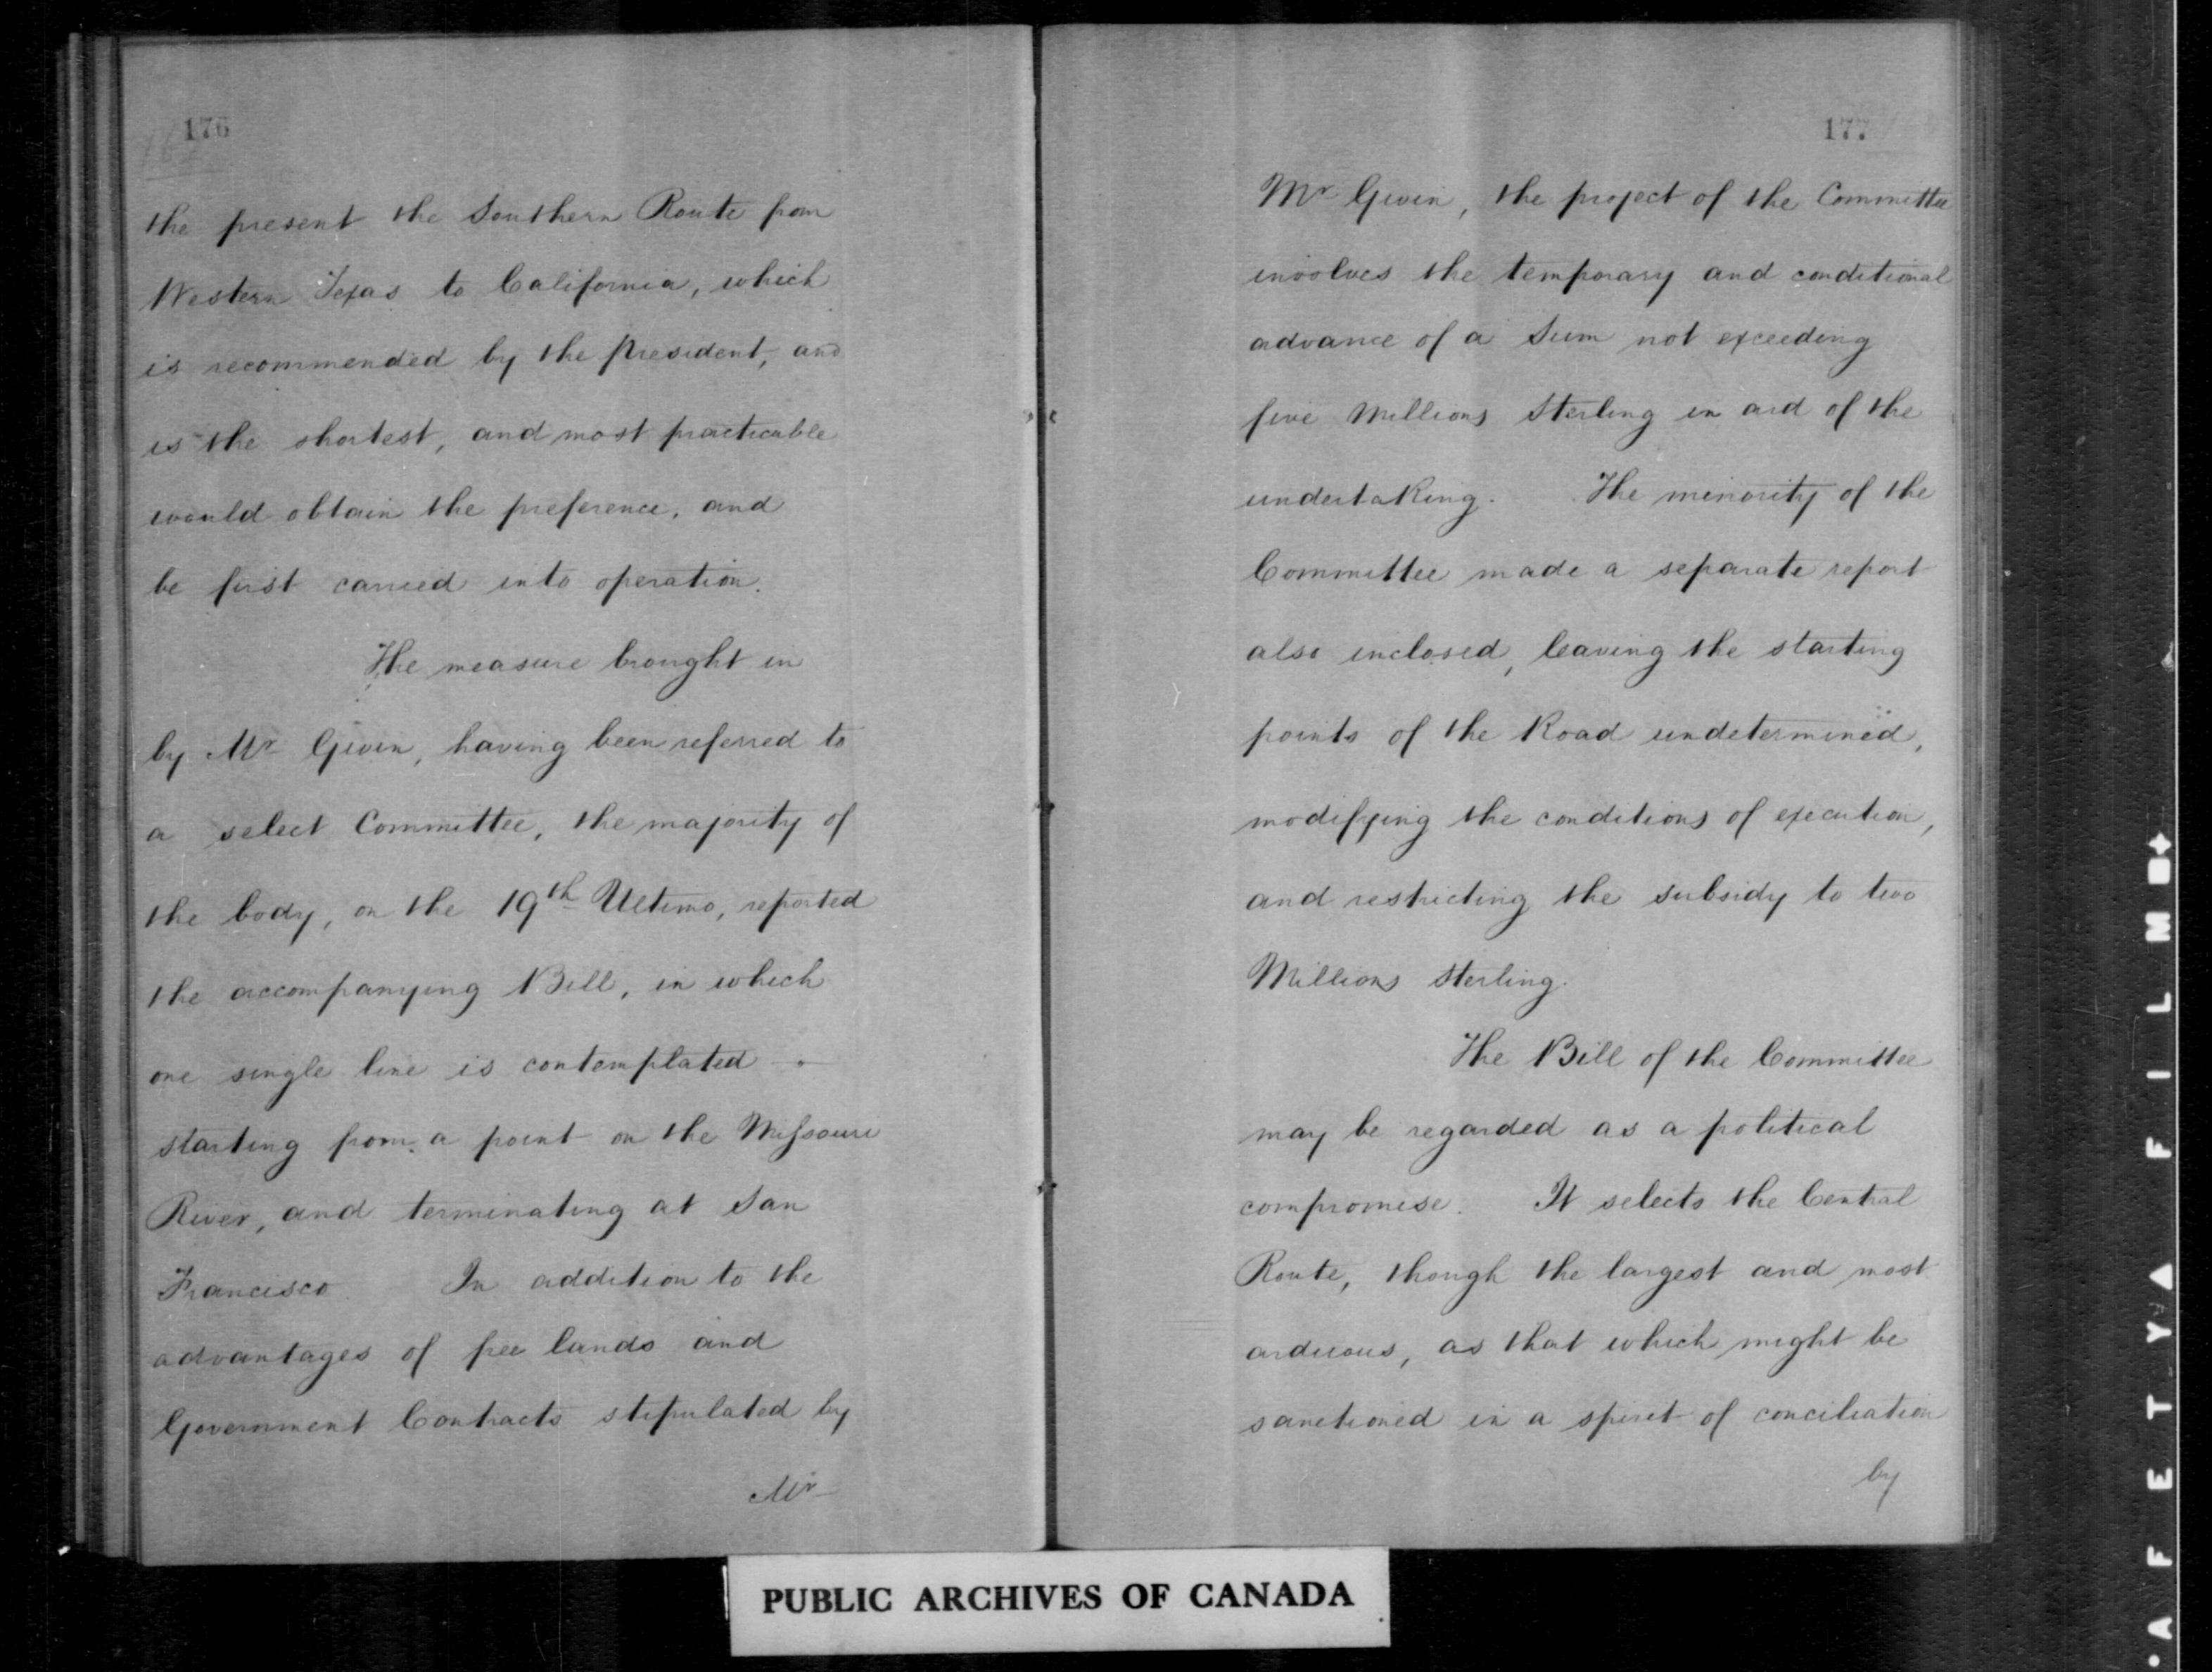 176
the present the Southern Route from
Western Texas to California, which
is recommended by the President, and
is the shortest, and most practicable
would obtain the preference, and
be first carried into operation.
The measure brought in
by Mr Gwin, having been referred to
a select Committee, the majority of
the body, on the 19th Ultimo, reported
the accompanying Bill, in which
one single line is contemplated
starting from a point on the Missouri
River, and terminating at San
Francisco. In addition to the
advantages of free lands and
Government Contracts stipulated by
Mr
177
Mr Gwin, the project of the Committee
involves the temporary and conditional
advance of a Sum not exceeding
five Millions Sterling in aid of the
undertaking. The minority of the
Committee made a separate report
also inclosed, leaving the starting
points of the Road undetermined,
modifying the conditions of execution,
and restricting the subsidy to two
Millions Sterling.
The Bill of the Committee
may be regarded as a political
compromise. It selects the Central
Route, though the largest and most
arduous, as that which might be
sanctioned in a spirit of conciliation
by
PUBLIC ARCHIVES OF CANADA
SAFETY FILM